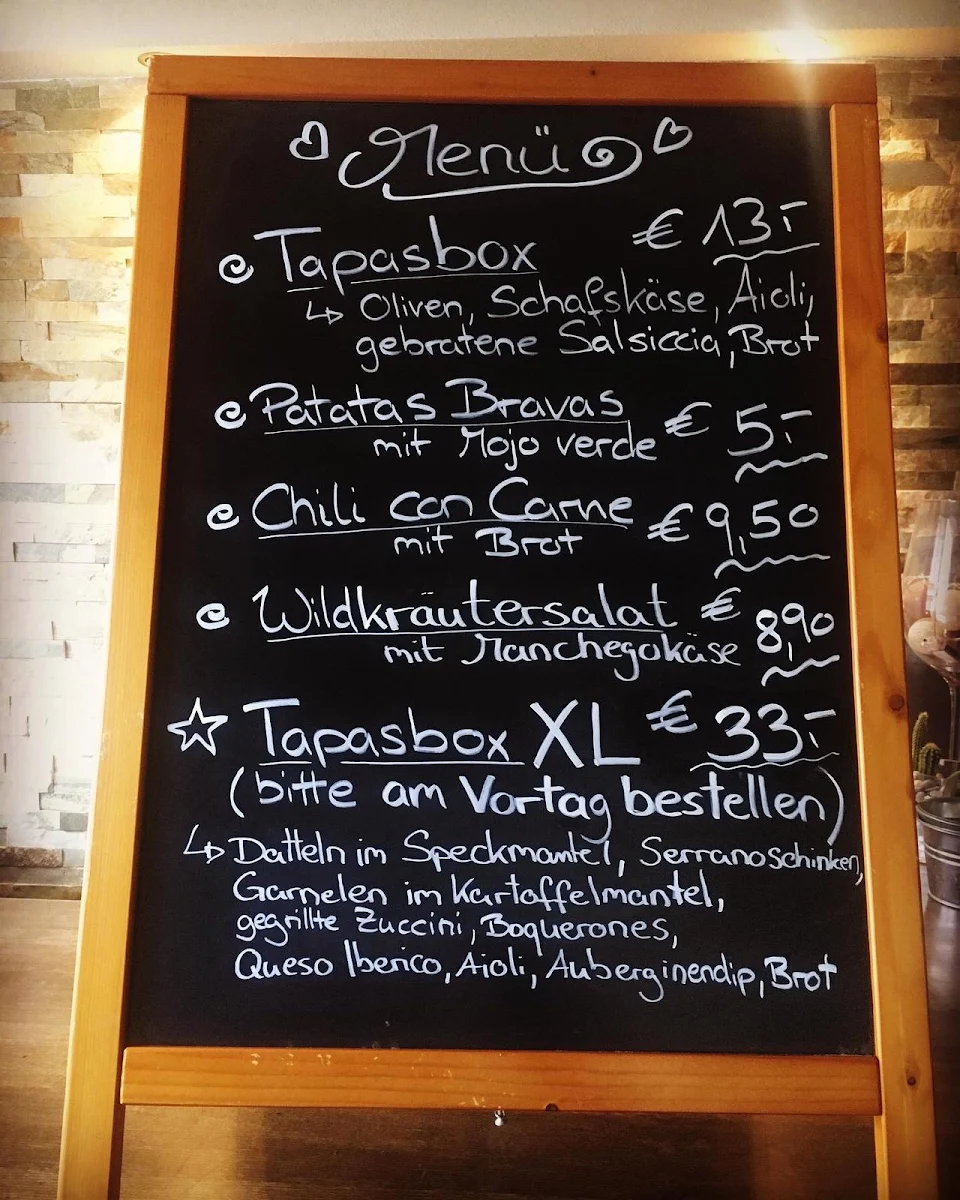 Menü
Tapasbox € 13.-
↳ Oliven, Schafskäse, Aioli,
gebratene Salsiccia, Brot
Patatas Bravas € 5.-
mit Mojo verde
Chili con Carne € 9,50
mit Brot
Wildkräutersalat € 8,90
mit Manchegokäse
☆ Tapasbox XL € 33.-
(bitte am Vortag bestellen)
↳ Datteln im Speckmantel, Serranoschinken,
Garnelen im Kartoffelmantel,
gegrillte Zuccini, Boquerones,
Queso Iberico, Aioli, Auberginendip, Brot